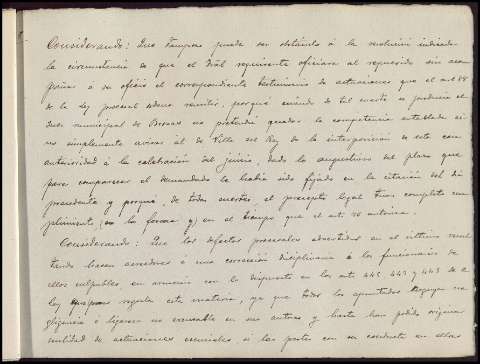 Considerando: Que tampoco puede ser obstáculo á la resolución indicada
la circunstancia de que el Tral requirente oficiara al requerido sin acom
pañar á su oficio el correspondiente testimonio de actuaciones que el art 88
de la ley procesal ordena remitir, porque cuando de tal suerte se producía el
Juez municipal de no pretendía quedar la competencia entablada si
no simplemente avisar al de Villa del Rey de la interposición de esta con
anterioridad á la celebración del juicio, dado lo angustioso del plazo que
para comparecer el demandado le había sido fijado en la citación del día
precedente y porque, de todas suertes, el precepto legal tuvo completo cum
plimiento (en la forma y) en el tiempo que el art autoriza.
Considerando: Que los defectos procesales advertidos en el último resul
tando hacen acreedores á una corrección disciplinaria á los funcionarios de
ellos culpables, en armonía con lo dispuesto en los arts 445 447 y 449 de la
ley que regula esta materia, ya que todos los apuntados negli
gencia ó ligereza no excusable en sus autores y hasta han podido originar
nulidad de actuaciones esenciales si las partes con su conducta en ellos